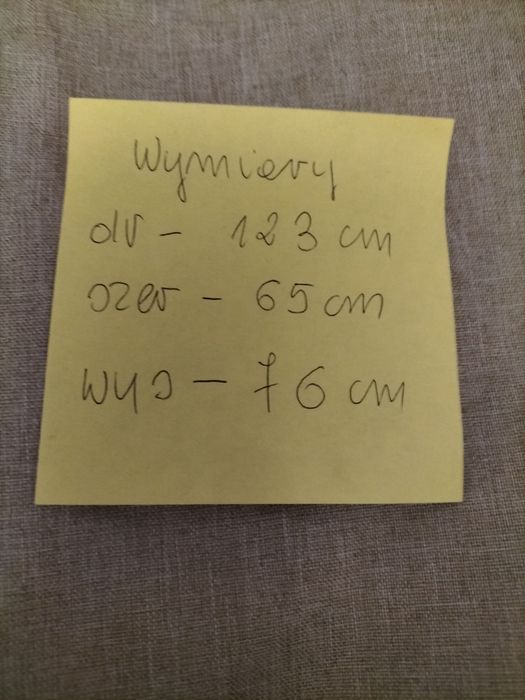 Wymiary
dł - 123 cm
szer - 65 cm
wys - 76 cm